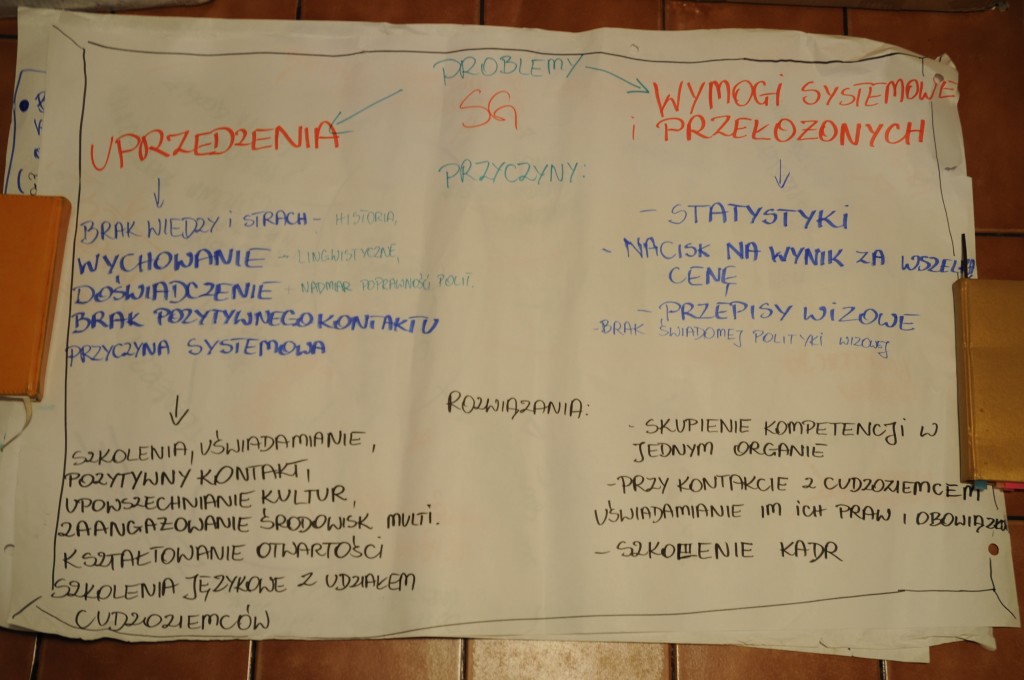 PROBLEMY
SG
UPRZEDZENIA
WYMOGI SYSTEMOWE
i PRZEŁOŻONYCH
PRZYCZYNY:
BRAK WIEDZY i STRACH - HISTORIA,
WYCHOWANIE - LINGWISTYCZNE,
DOŚWIADCZENIE + NADMIAR POPRAWNOŚCI POLIT.
BRAK POZYTYWNEGO KONTAKTU
PRZYCZYNA SYSTEMOWA
- STATYSTYKI
- NACISK NA WYNIK ZA WSZELKĄ
CENĘ
- PRZEPISY WIZOWE
- BRAK ŚWIADOMEJ POLITYKI WIZOWEJ
ROZWIĄZANIA:
SZKOLENIA, UŚWIADAMIANIE,
POZYTYWNY KONTAKT,
UPOWSZECHNIANIE KULTUR,
ZAANGAŻOWANIE ŚRODOWISK MULTI.
KSZTAŁTOWANIE OTWARTOŚCI
SZKOLENIA JĘZYKOWE Z UDZIAŁEM
CUDZOZIEMCÓW
- SKUPIENIE KOMPETENCJI W
JEDNYM ORGANIE
- PRZY KONTAKCIE Z CUDZOZIEMCEM
UŚWIADAMIANIE IM ICH PRAW I OBOWIĄZKÓW
- SZKOLENIE KADR